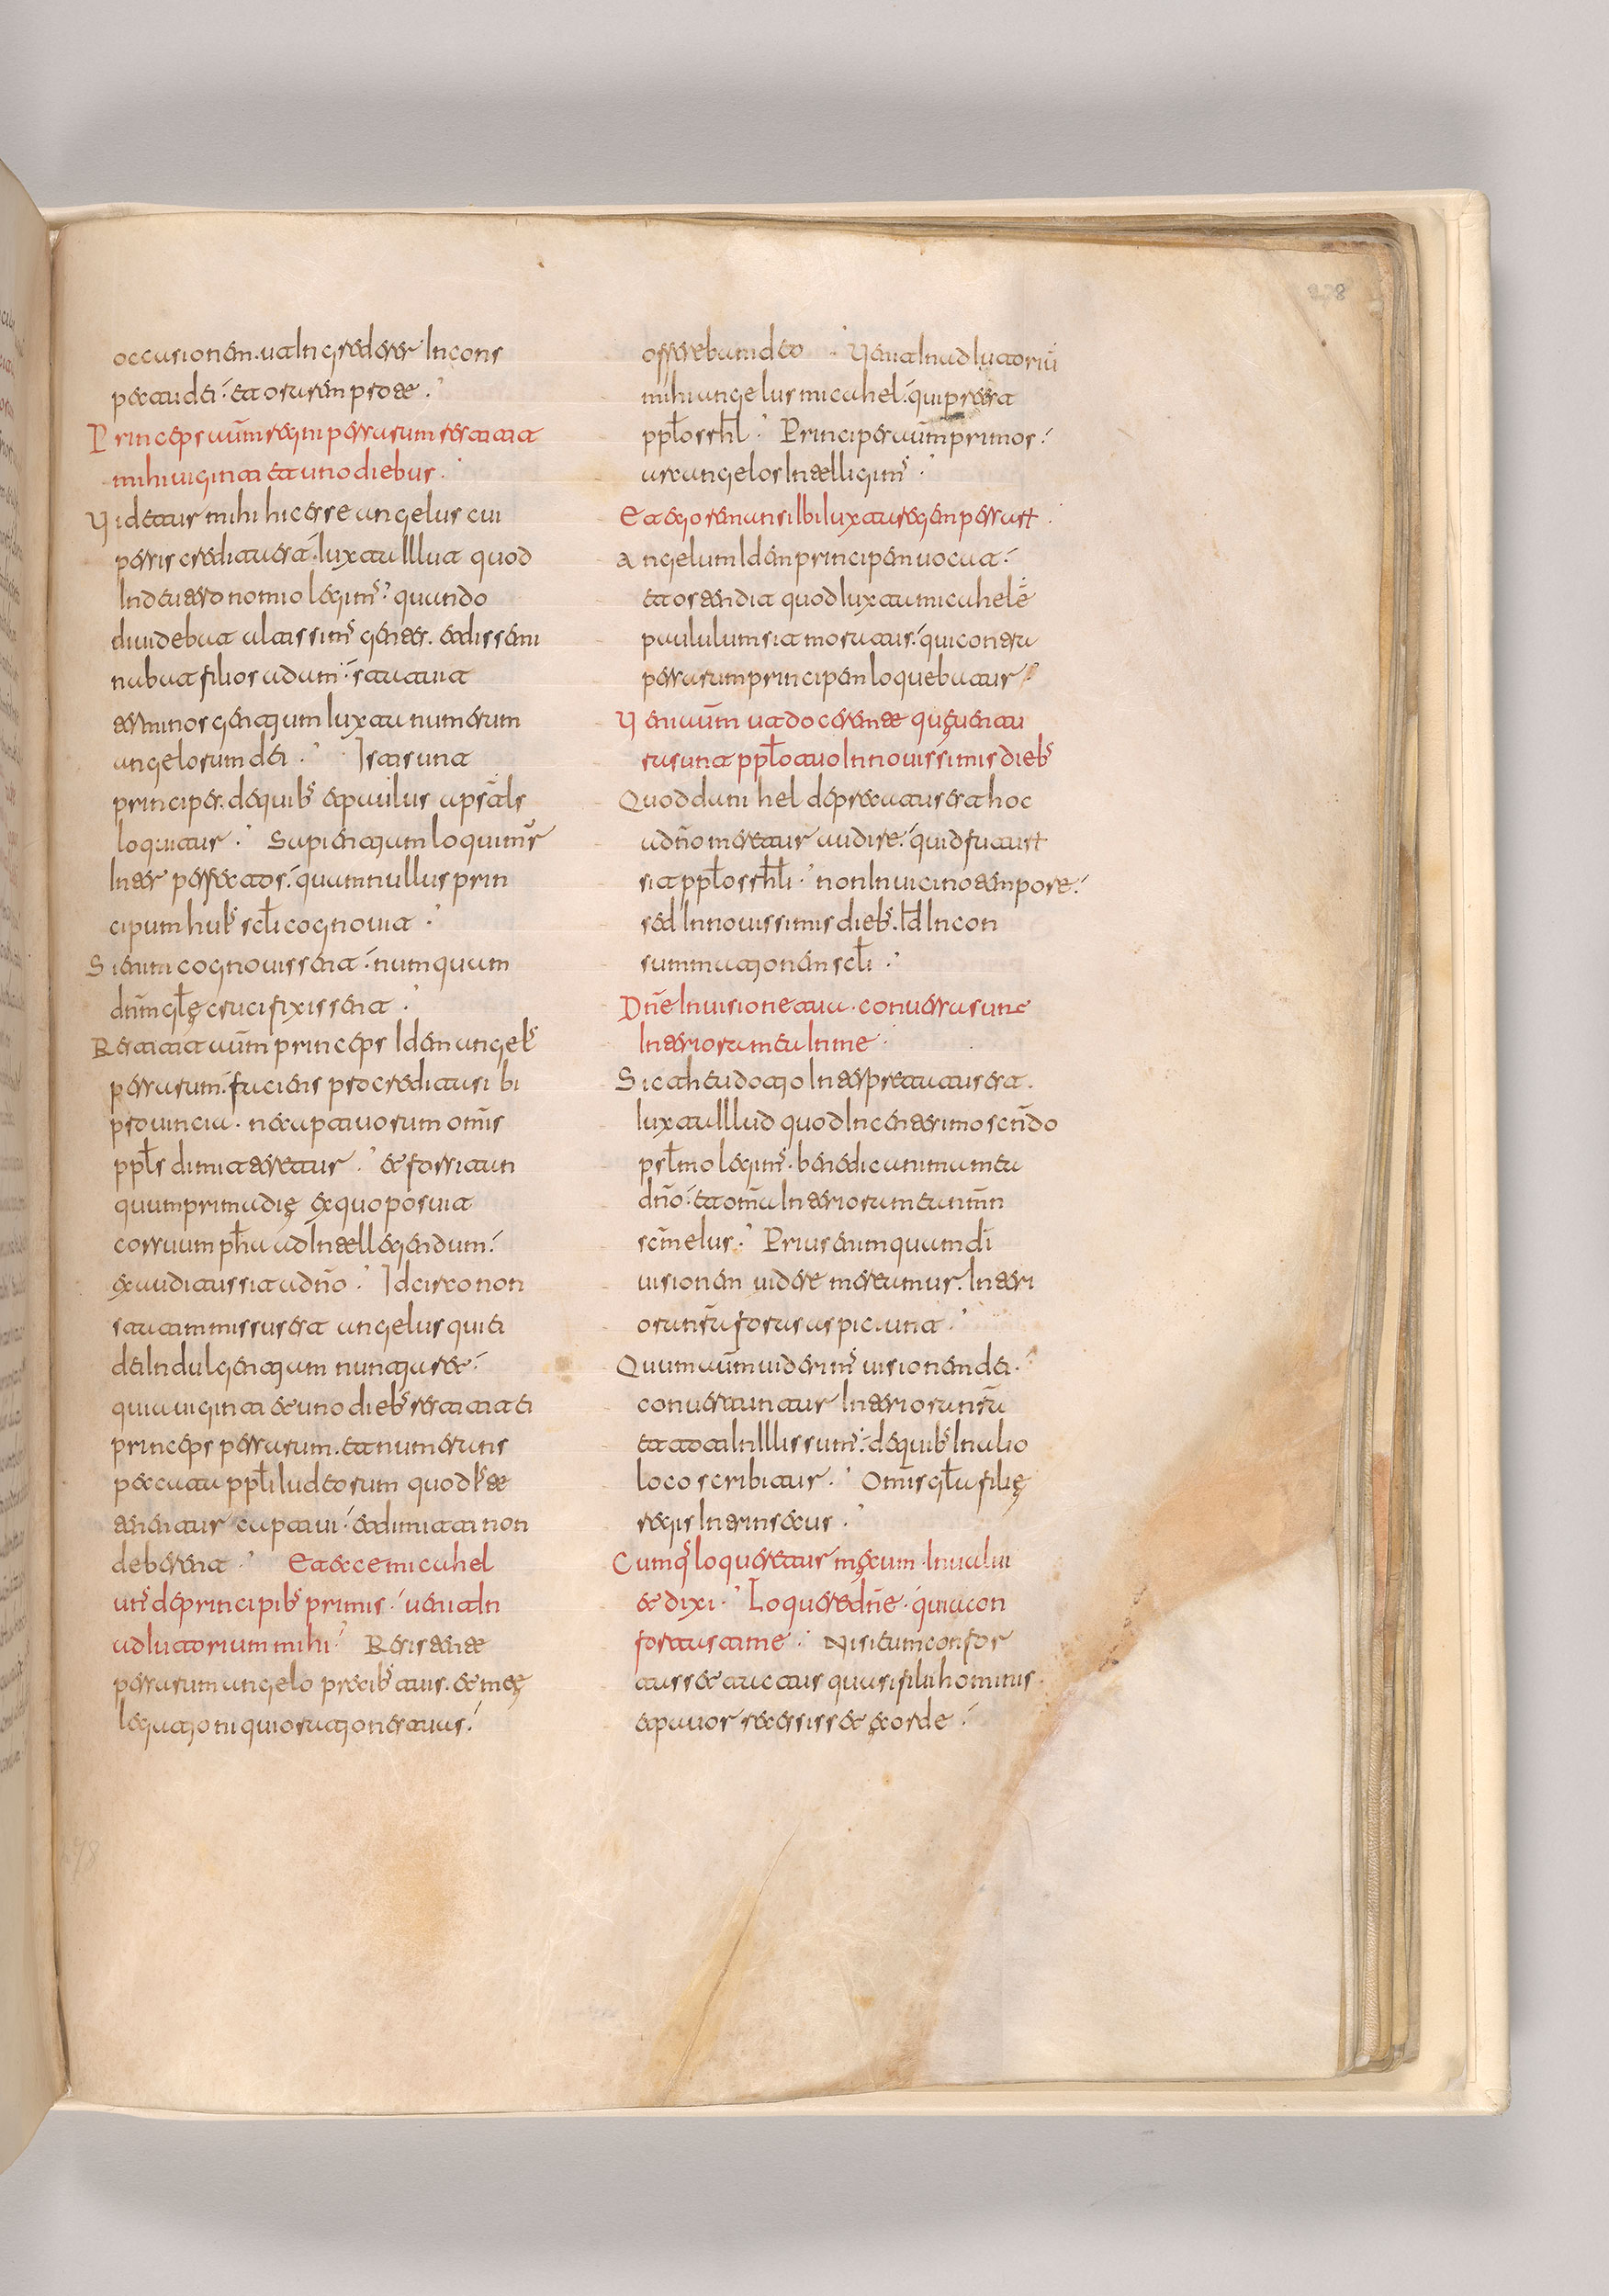 occasionem. ut ingrederer In cons
pectu dei: et orarem pro te.
Princeps aũm regni persarum restitit
mihi uiginti et uno diebus.
Videtur mihi hic esse angelus cui
persis credita erat. luxta Illut quod
In deuteronomio legimꝰ. quando
diuidebat altissimꝰ gentes. et disseni
nabat filios adam. statuit
terminos gentium luxta numerum
angelorum dei. Isti sunt
principes. de quibꝰ et paulus apstls
loquitur. Sapientium loquimꝰr
Inter perfectos. quam nullus prin
cipum huIꝰ scłi cognouit.
Si enim cognouissent. numquam
dnm głę crucifixissent.
Restitit aũm princeps Idem angelꝰ
persarum. faciens pro credita sibi
prouincia. ne captiuorum omnis
ppłs dimitteretur. et forsitan
quum prima die ex quo posuit
cor suum pfta ad Intellegendum.
exauditus sit a dno. Idcirco non
statim missus est angelus qui ei
dei Indulgentiam nuntiaret.
quia uiginti et uno diebꝰ restitit ei
princeps persarum. et numerans
peccata ppłi Iudeorum quod Iꝰte
tenentur captiui. et dimitti non
deberent. Et ecce micahel
unꝰ de principibꝰ primis. uenit In
adIutorium mihi. Resistente
persarum angelo precibꝰ tuis. et meę
legationi qui orationes tuas.
offerebam deo. Venit In adIutoriũ
mihi angelus micahel. qui preest
ppło srhł. Principes aũm primos.
arcangelos Intelligimꝰ.
Et ego remansi Ibi Iuxta regem persarũ.
Angelum Idem principem uocat.
et ostendit quod Iuxta micahele
paululum sit moratus. qui contra
persarum principem loquebatur.
Veni aũm ut docerem te quę uentu
ra sunt ppło tuo In nouissimis diebꝰ
Quod danihel deprecatus est hoc
a dno meretur audire. quid faturũ
sit ppło srhłi. non In uicino tempore.
sed In nouissimis diebꝰ. Id In con
summationem scłi.
Dne In uisione tua. conuersa sunt
Interiora mea In me.
Sicut eudotio Interpretatus est.
Iuxta Illud quod In centesimo scdo
psłmo legimꝰ. benedic anima mea
dno. et omnia Interiora mea nmn
scm eIus. Prius enim quam di
uisionem uidere mereamur. Interi
ora nrã foras aspiciunt.
Quum aũm uiderimꝰ uisionem dei.
conuertuntur Interiora nrã
et toti In Illis sumꝰ. de quibꝰ In alio
loco scribitur. Omnis głã filię
regis Intrinsecus.
Cumqꝰ loqueretur mecum. Inualui
et dixi. Loquere dne. quia con
fortasti me. Nisi eum confor
tasset tactus quasi filii hominis.
et pauor recessisset ex corde.